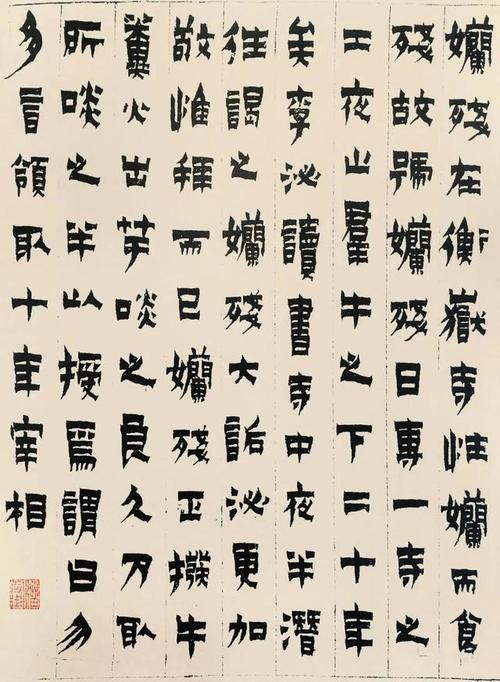 嬾殘在衡嶽寺性嬾而食
殘故號嬾殘日專一寺之
工夜止羣牛之下二十年
矣李泌讀書寺中夜半潛
往謁之嬾殘大詬泌更加
敬惟拜而已嬾殘正撥牛
糞火出芋啖之良久乃取
所啖之半以授焉謂曰勿
多言領取十年宰相